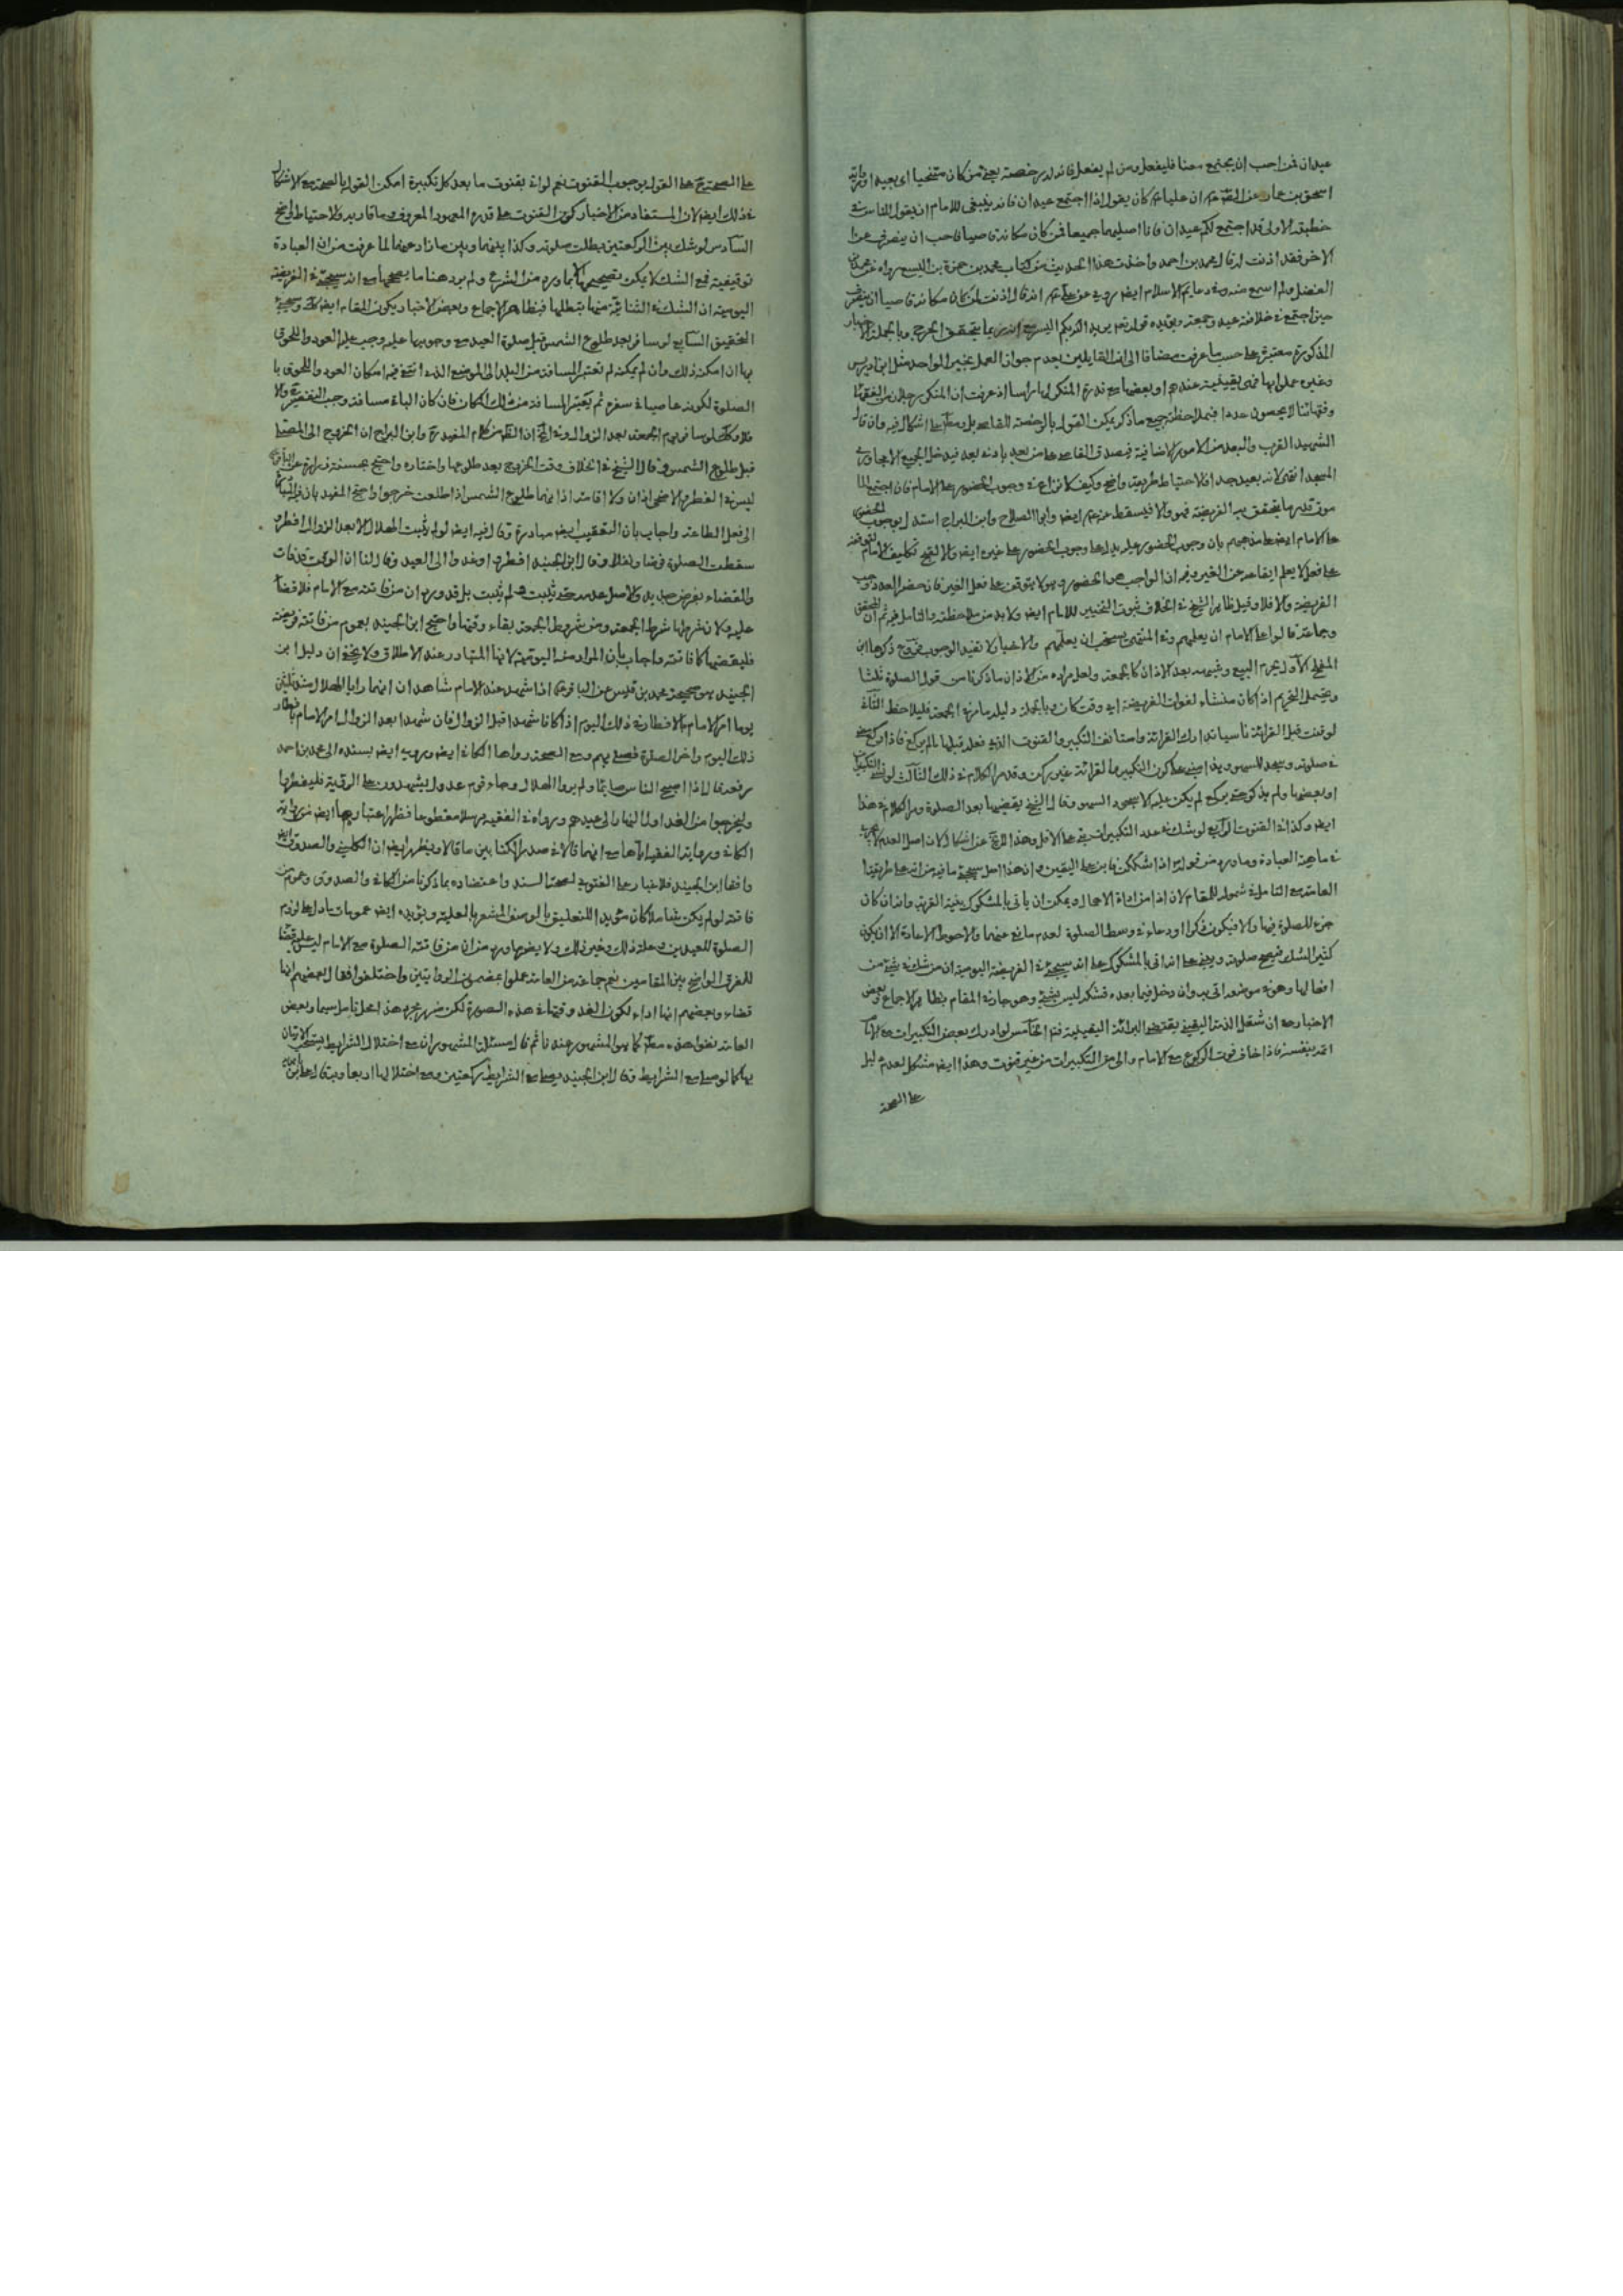 عيدان فمن احب ان يجتمع معنا فليفعل ومن لم يفعل فان له رخصة يعنى من كان متنحيا
اسحق بن عمار ان عليا ع كان يقول اذا اجتمع عيدان فانه ينبغى للامام ان يقول للناس فى
خطبته الاولى قد اجتمع لكم عيدان فانا اصليهما جميعا فمن كان مكانه قاصيا فاحب ان ينصرف عن
الاخر فقد اذنت له قال محمد بن احمد واخذت هذا الحديث من كتاب محمد بن حمزة بن اليسع رواه عن محمد بن
الفضل ولم اسمع منه وفى دعايم الاسلام ايض روى عن على انه قال اذنت لمن كان مكانه قاصيا ان ينصرف
حين اجتمع فى خلافته عيد وجمعة ويؤيده قوله تع يريد الله بكم اليسر وبالجملة الاخبار
المذكورة معتبرة على حسب ما عرفت مضافا الى ان القايلين بعدم جواز العمل بخبر الواحد مثل ابن ادريس
وغيره عملوا بها فهى يقينية عندهم او بعضها مع ندرة المنكر لها راسا اذ عرفت ان المنكر رجلان من الفقهاء
وفقهائنا لا يحصون عددا فبملاحظة جميع ما ذكر يمكن القول بالرخصة للقاصى بل ومطلقا على اشكال فيه وان قال
الشهيد القرب والبعد من الامور الاضافية فيصدق القاصى على من بعد بادنى بعد فيدخل الجميع الا مجاورى
المسجد انتهى لانه بعيد جدا فالاحتياط طريقه واضح وكيف كان لا نزاع فى وجوب الحضور على الامام فان اجتمع
من قدر ما يتحقق به الفريضة فهو والا فيسقط عنه ايض وابو الصلاح وابن البراج استدلا بوجوب الحضور
على الامام ايض على مذهبهم بان وجوب الحضور عليه يدل على وجوب الحضور على غيره ايض والا لقبح تكليف الامام
على فعل لا يعلم ايقاعه من الغير وفيه ان الواجب هو الحضور وهو لا يتوقف على فعل الغير فان حضر العدد وجب
الفريضة والا فلا وقيل ظاهر الشيخ فى الخلاف ثبوت التخيير للامام ايض ولا بد من ملاحظته والتامل فيه ثم ان المحقق
وجماعة قالوا على الامام ان يعلمهم وفى المنتهى يستحب ان يعلمهم والاخبار لا تفيد الوجوب فروع ذكرها ابن
المفلح الاول يحرم البيع وشبهه بعد الاذان كالجمعة ولعل مراده من الاذان ما ذكرنا من قول الصلوة ثلثا
ويحتمل التحريم اذا كان منشاء لفوات الفريضة اى وقت كان وبالجملة دليله ما مر فى الجمعة فليلاحظ الثانى
لو قنت قبل القرائة ناسيا تدارك القرائة واستانف التكبير والقنوت الذى فعله قبلها ما لم يركع فاذا ركع مضى
فى صلوته وسجد للسهو وهذا مبنى على كون التكبير كالقرائة غير ركن وقد مر الكلام فى ذلك الثالث لو نسى التكبيرات
او بعضها ولم يذكر حتى يركع لم يكن عليه الا سجود السهو وقال الشيخ يقضيها بعد الصلوة ومر الكلام فى هذا
ايض وكذا فى القنوت الرابع لو شك فى عدد التكبيرات بنى على الاقل وهذا لا يخ عن اشكال لان اصل العدم لا يجرى
فى ماهية العبادة وما ورد من قوله اذا شككت فابن على اليقين وان هذا اصل سيجئ ما فيه من انه على طريقة
العامة مع التامل فى شموله للمقام لان اذا من اداة الاهمال ويمكن ان ياتى بالمشكوك بنية القربة وانه ان كان
جزء للصلوة فبها والا فيكون ذكرا او دعاء فى وسط الصلوة لعدم مانع عنهما والاحوط الاعادة الا ان يكون
كثير الشك فيصح صلوته ويبنى على انه اتى بالمشكوك على انه سيجئ فى الفريضة اليومية ان من شك فى شئ من
افعالها وهو فى موضعه اتى به وان دخل فيما بعده فشكه ليس بشئ وهو جار فى المقام بظاهر الاجماع وبعض
الاخبار مع ان شغل الذمة اليقينى يقتضى البرائة اليقينية فتم الخامس لو ادرك بعض التكبيرات مع الامام
اتمه بنفسه فاذا خاف فوت الركوع مع الامام والى من التكبيرات من غير قنوت وهذا ايض مشكل لعدم دليل
على الصحة
على الصحة ح على القول بوجوب القنوت نعم لو اتى بقنوت ما بعد كل تكبيرة امكن القول بالصحة مع الاشكال
فى ذلك ايض لان المستفاد من الاخبار كون القنوت على قدر المعهود المعروف والاحتياط واضح
السادس لو شك بين الركعتين بطلت صلوته وكذا بينهما وبين ما زاد عنهما لما عرفت من ان العبادة
توقيفية فمع الشك لا يمكن تصحيحها الا بما ورد من الشرع ولم يرد هنا ما يصححها مع انه سيجئ فى الفريضة
اليومية ان الشك فى الثنائية منها مبطلها فبظاهر الاجماع وبعض الاخبار يكون المقام ايض كك وسيجئ
التحقيق السابع لو سافر بعد طلوع الشمس قبل صلوة العيد مع وجوبها عليه وجب عليه العود واللحوق
بها ان امكنه ذلك وان لم يمكنه لم تعتبر المسافة من البلد الى الموضع الذى انتفى فيه امكان العود واللحوق با
الصلوة لكونه عاصيا فى سفره ثم يعتبر المسافة من ذلك المكان فان كان الباقى مسافة وجب التقصير والا
فلا وكك لو سافر يوم الجمعة بعد الزوال ان الظاهر من كلام المفيد وابن البراج ان الخروج الى المصلى
قبل طلوع الشمس وقال الشيخ فى الخلاف وقت الخروج بعد طلوعها واختاره واحتج بحسنة زرارة عن الباقر
ليس فى الفطر والاضحى اذان ولا اقامة اذانهما طلوع الشمس اذا طلعت خرجوا واحتج المفيد بان
الى فعل الطاعة واجاب بان التعقيب ايض مبادرة وقال فيه ايض لو لم يثبت الهلال الا بعد الزوال افطر و
سقطت الصلوة فرضا ونفلا وقال ابن الجنيد افطروا وغدوا الى العيد وقال لنا ان الوقت قد فات
والقضاء بفرض جديد والاصل عدمه حتى يثبت ولم يثبت بل قد ورد ان من فاتته مع الامام فلا قضاء
عليه ولان شرطها شرط الجمعة ومن شروط الجمعة بقاء وقتها واحتج ابن الجنيد بعموم من فاتته فريضة
فليقضها كما فاتته واجاب بان المراد منه اليومية لانها المتبادر عند الاطلاق ولا يخفى ان دليل ابن
الجنيد هو صحيحة محمد بن قيس عن الباقر ع اذا شهد عند الامام شاهدان انهما رايا الهلال منذ ثلثين
يوما امر الامام بالافطار فى ذلك اليوم اذا كانا شهدا قبل الزوال فان شهدا بعد الزوال امر الامام بافطار
ذلك اليوم واخر الصلوة فصلى بهم ومع الصحة رواها الكافى ايض ويرويه ايض بسنده الى محمد بن احمد
رفعه قال اذا اصبح الناس صياما ولم يروا الهلال وجاء قوم عدول يشهدون على الرؤية فليفطروا
وليخرجوا من الغد اول النهار الى عيدهم ورواه فى الفقيه مرسلا مقطوعا فظهر اعتبارها ايض من رواية
الكافى ورواية الفقيه اياها مع انهما قالا فى صدر الكتابين ما قالا ويظهر ايض ان الكلينى والصدوق ايض
وافقا ابن الجنيد فلا غبار على الفتوى لصحة السند واعتضاده بما ذكرنا من الكافى والصدوق وعموم من
فاتته لو لم يكن شاملا كان مؤيدا للتعليق بالوصف المشعر بالعلية ويؤيده ايض عمومات ما دل على لزوم
الصلوة للعيدين وعلة ذلك وغير ذلك ولا يضرها ورد من ان من فاتته الصلوة مع الامام ليس عليه قضاء
للفرق الواضح بين المقامين نعم جماعة من العامة عملوا بمضمون الروايتين واختلفوا فقال بعضهم انها
قضاء وبعضهم انها اداء لكون الغد وقتها فى هذه الصورة لكن ضرر مجرد هذا محل تامل سيما وبعض
العامة نفوا هذه مطلقا كما هو المشهور عندنا ثم قال مسئلة المشهور ان مع اختلال الشرايط يستحب الاتيان
بها كما لو صلى مع الشرايط وقال ابن الجنيد يصلى مع الشرايط ركعتين ومع اختلالها اربعا وبه قال على بن بابويه